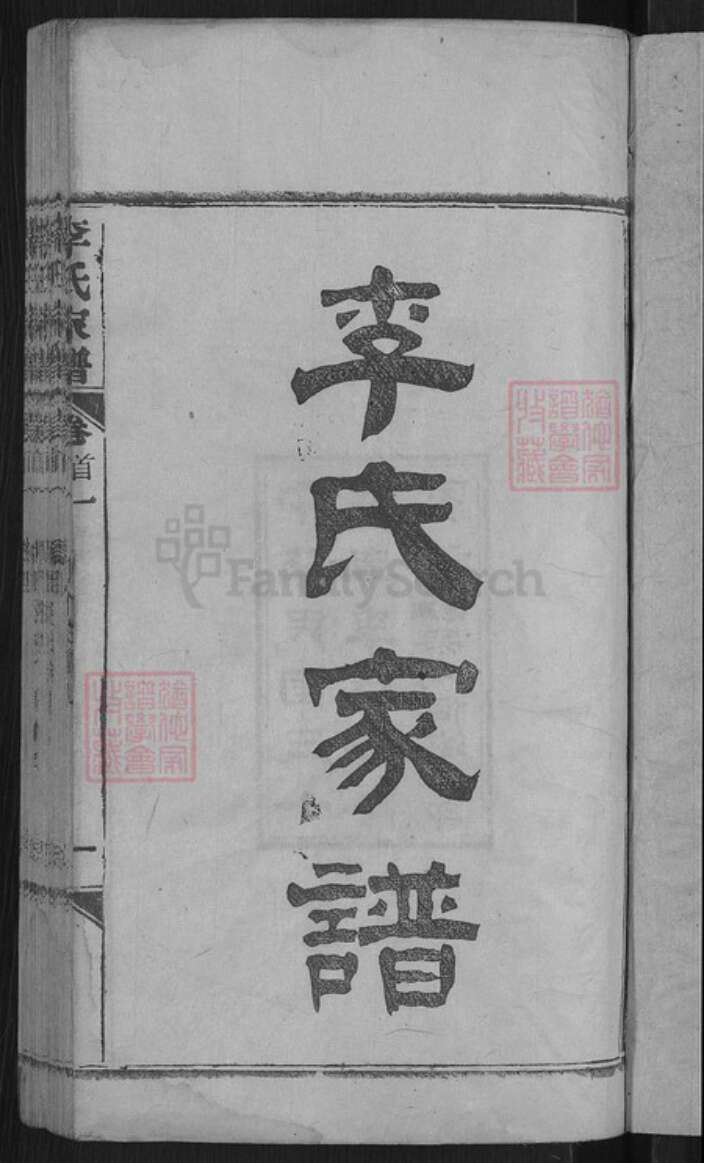 李氏家譜
李氏家譜
卷首一
一
猶他家
譜學會
收藏
猶他家
譜學會
收藏
FamilySearch